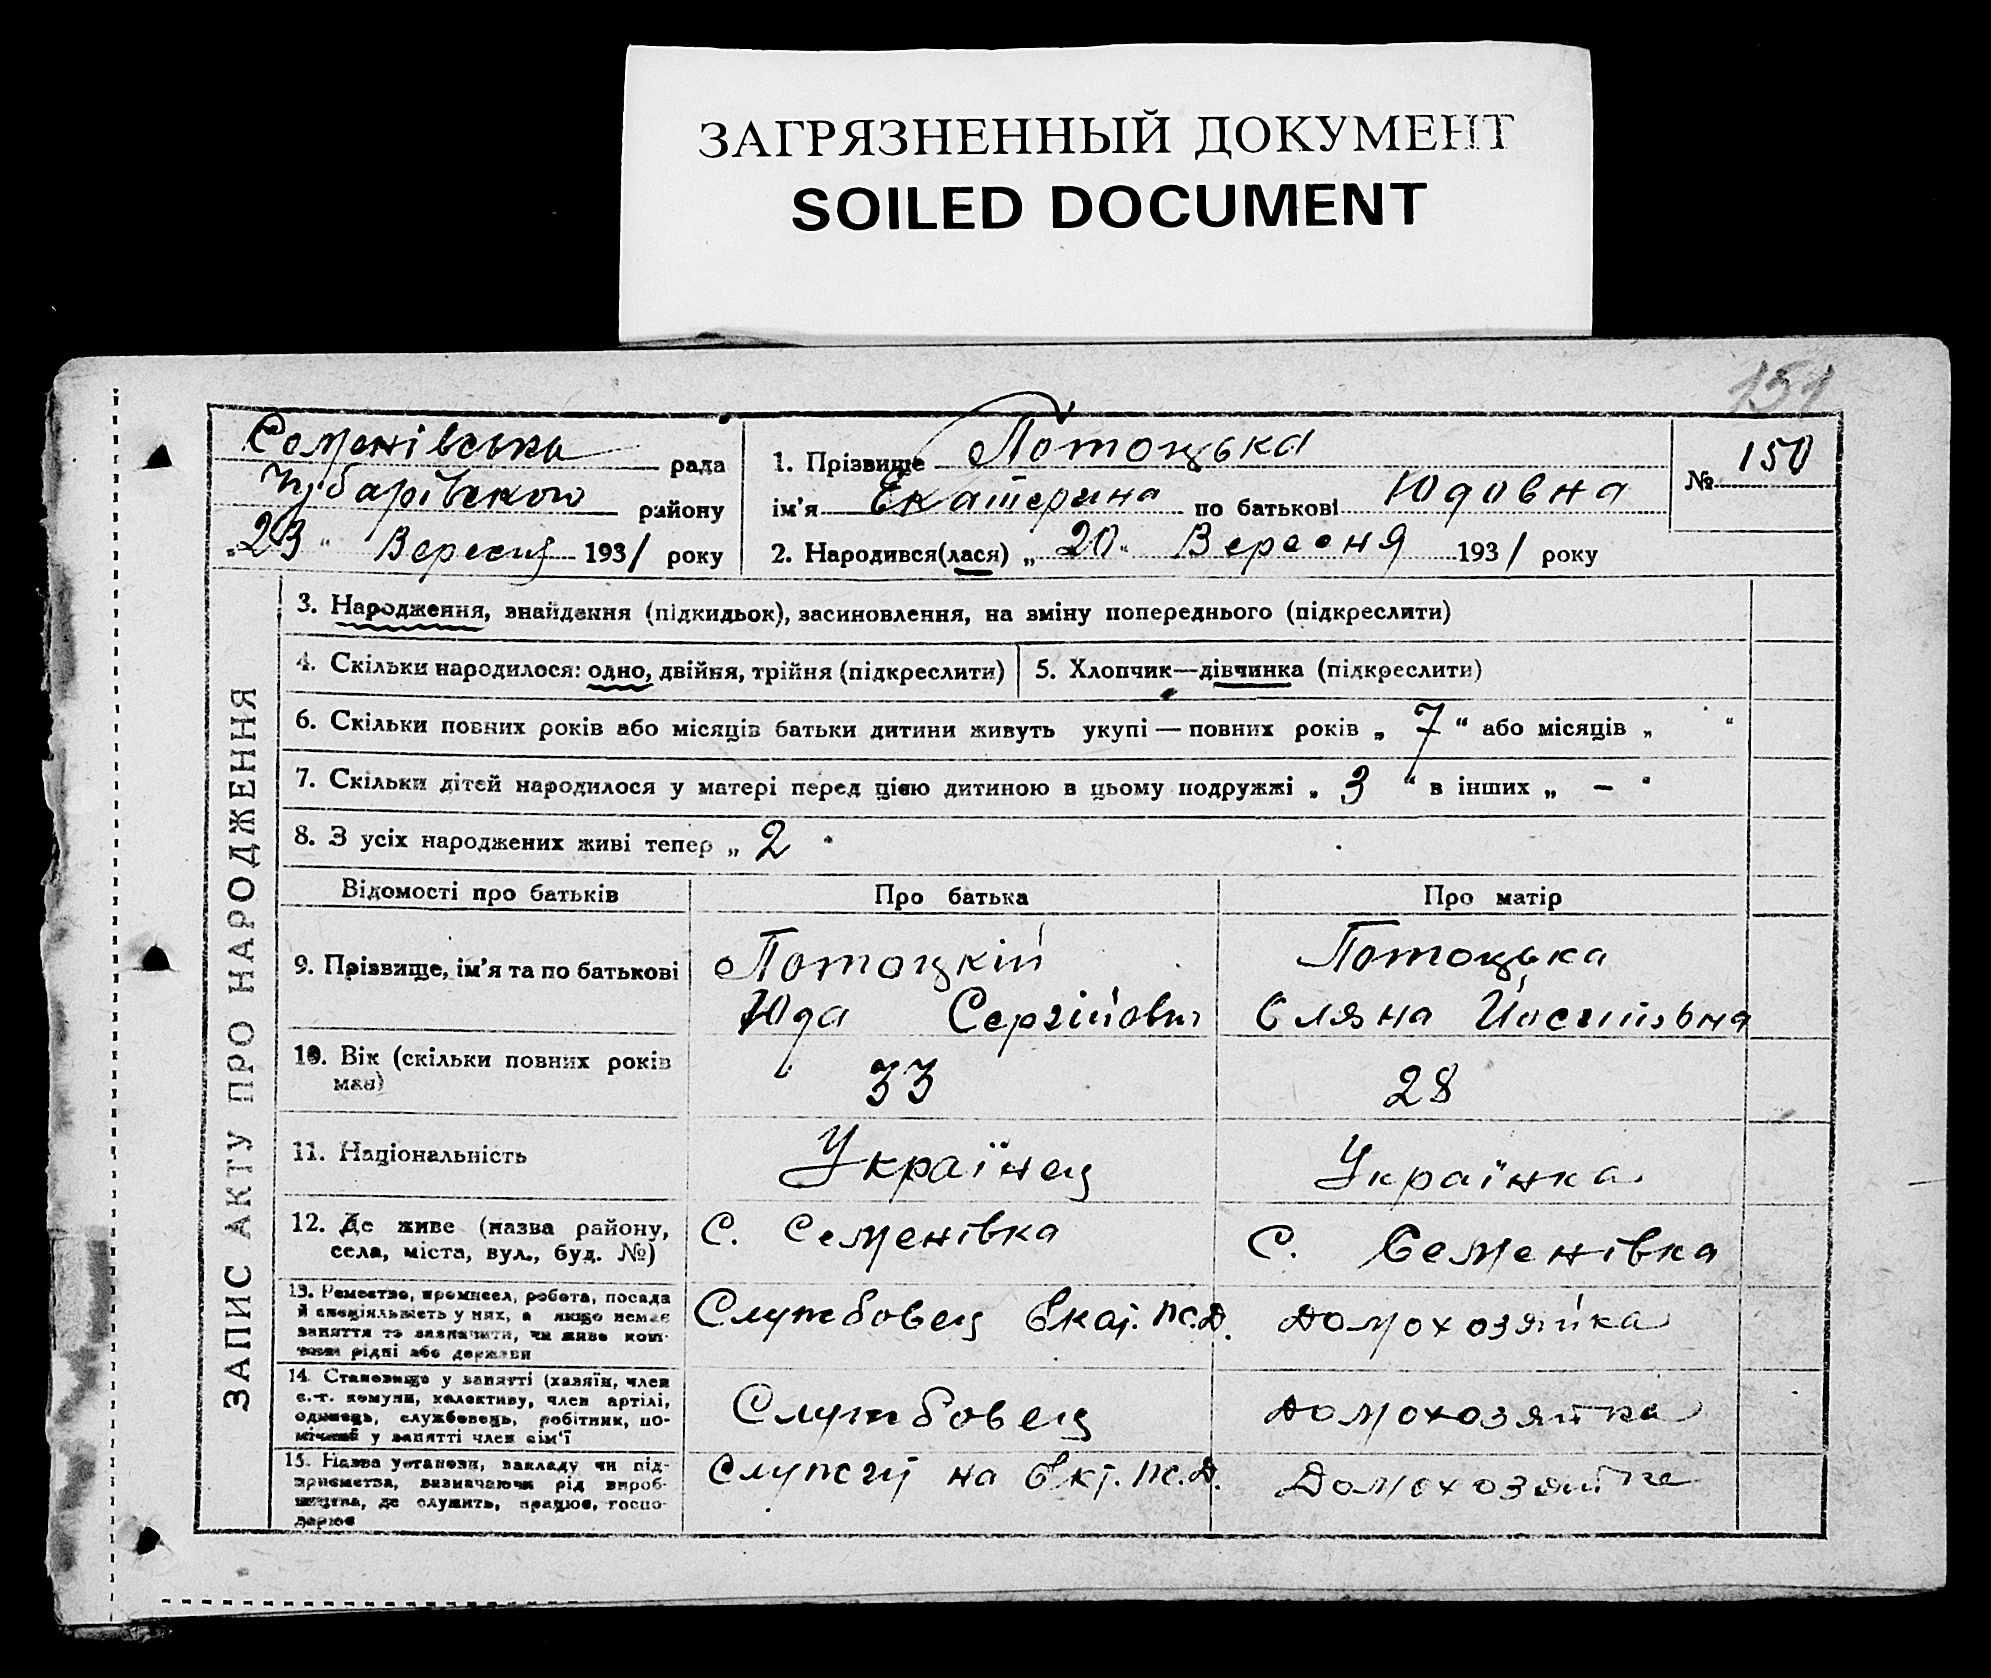 ЗАГРЯЗНЕННЫЙ ДОКУМЕНТ
SOILED DOCUMENT
151
Семенівська рада
Чубарівского району
„23“ Вересня 1931 року
1. Прізвище Потоцька
ім'я Екатерина по батькові Юдовна
2. Народився(лася) „20“ Вересня 1931 року
№ 150
ЗАПИС АКТУ ПРО НАРОДЖЕННЯ
3. Народження, знайдення (підкидьок), засиновлення, на зміну попереднього (підкреслити)
4. Скільки народилося: одно, двійня, трійня (підкреслити)
5. Хлопчик—дівчинка (підкреслити)
6. Скільки повних років або місяців батьки дитини живуть укупі — повних років „7“ або місяців „ “
7. Скільки дітей народилося у матері перед цією дитиною в цьому подружжі „3“ в інших „ – “
8. З усіх народжених живі тепер „2“
Відомості про батьків
Про батька
Про матір
9. Прізвище, ім'я та по батькові
Потоцкій
Юда Сергійович
Потоцька
Йосипівна
10. Вік (скільки повних років має)
33
28
11. Національність
Українец
Українка
12. Де живе (назва району,
села, міста, вул., буд. №)
с. Семенівка
с. Семенівка
13. Ремество, промисел, робота, посада
й спеціяльність у них, а якщо немає
заняття то зазначити, чи живе кош-
тами рідні або держави
Службовец Екат. ж.д.
Домохозяйка
14. Становище у занятті (хазяїн, член
с.-г. комуни, колективу, член артілі,
одинець, службовець, робітник, по-
мічний у занятті член сім'ї
Службовец
домохозяйка
15. Назва установи, закладу чи під-
приємства, зазначаючи рід вироб-
ництва, де служить, працює, госпо-
дарює
на Ект. ж.д.
Домохозяйка